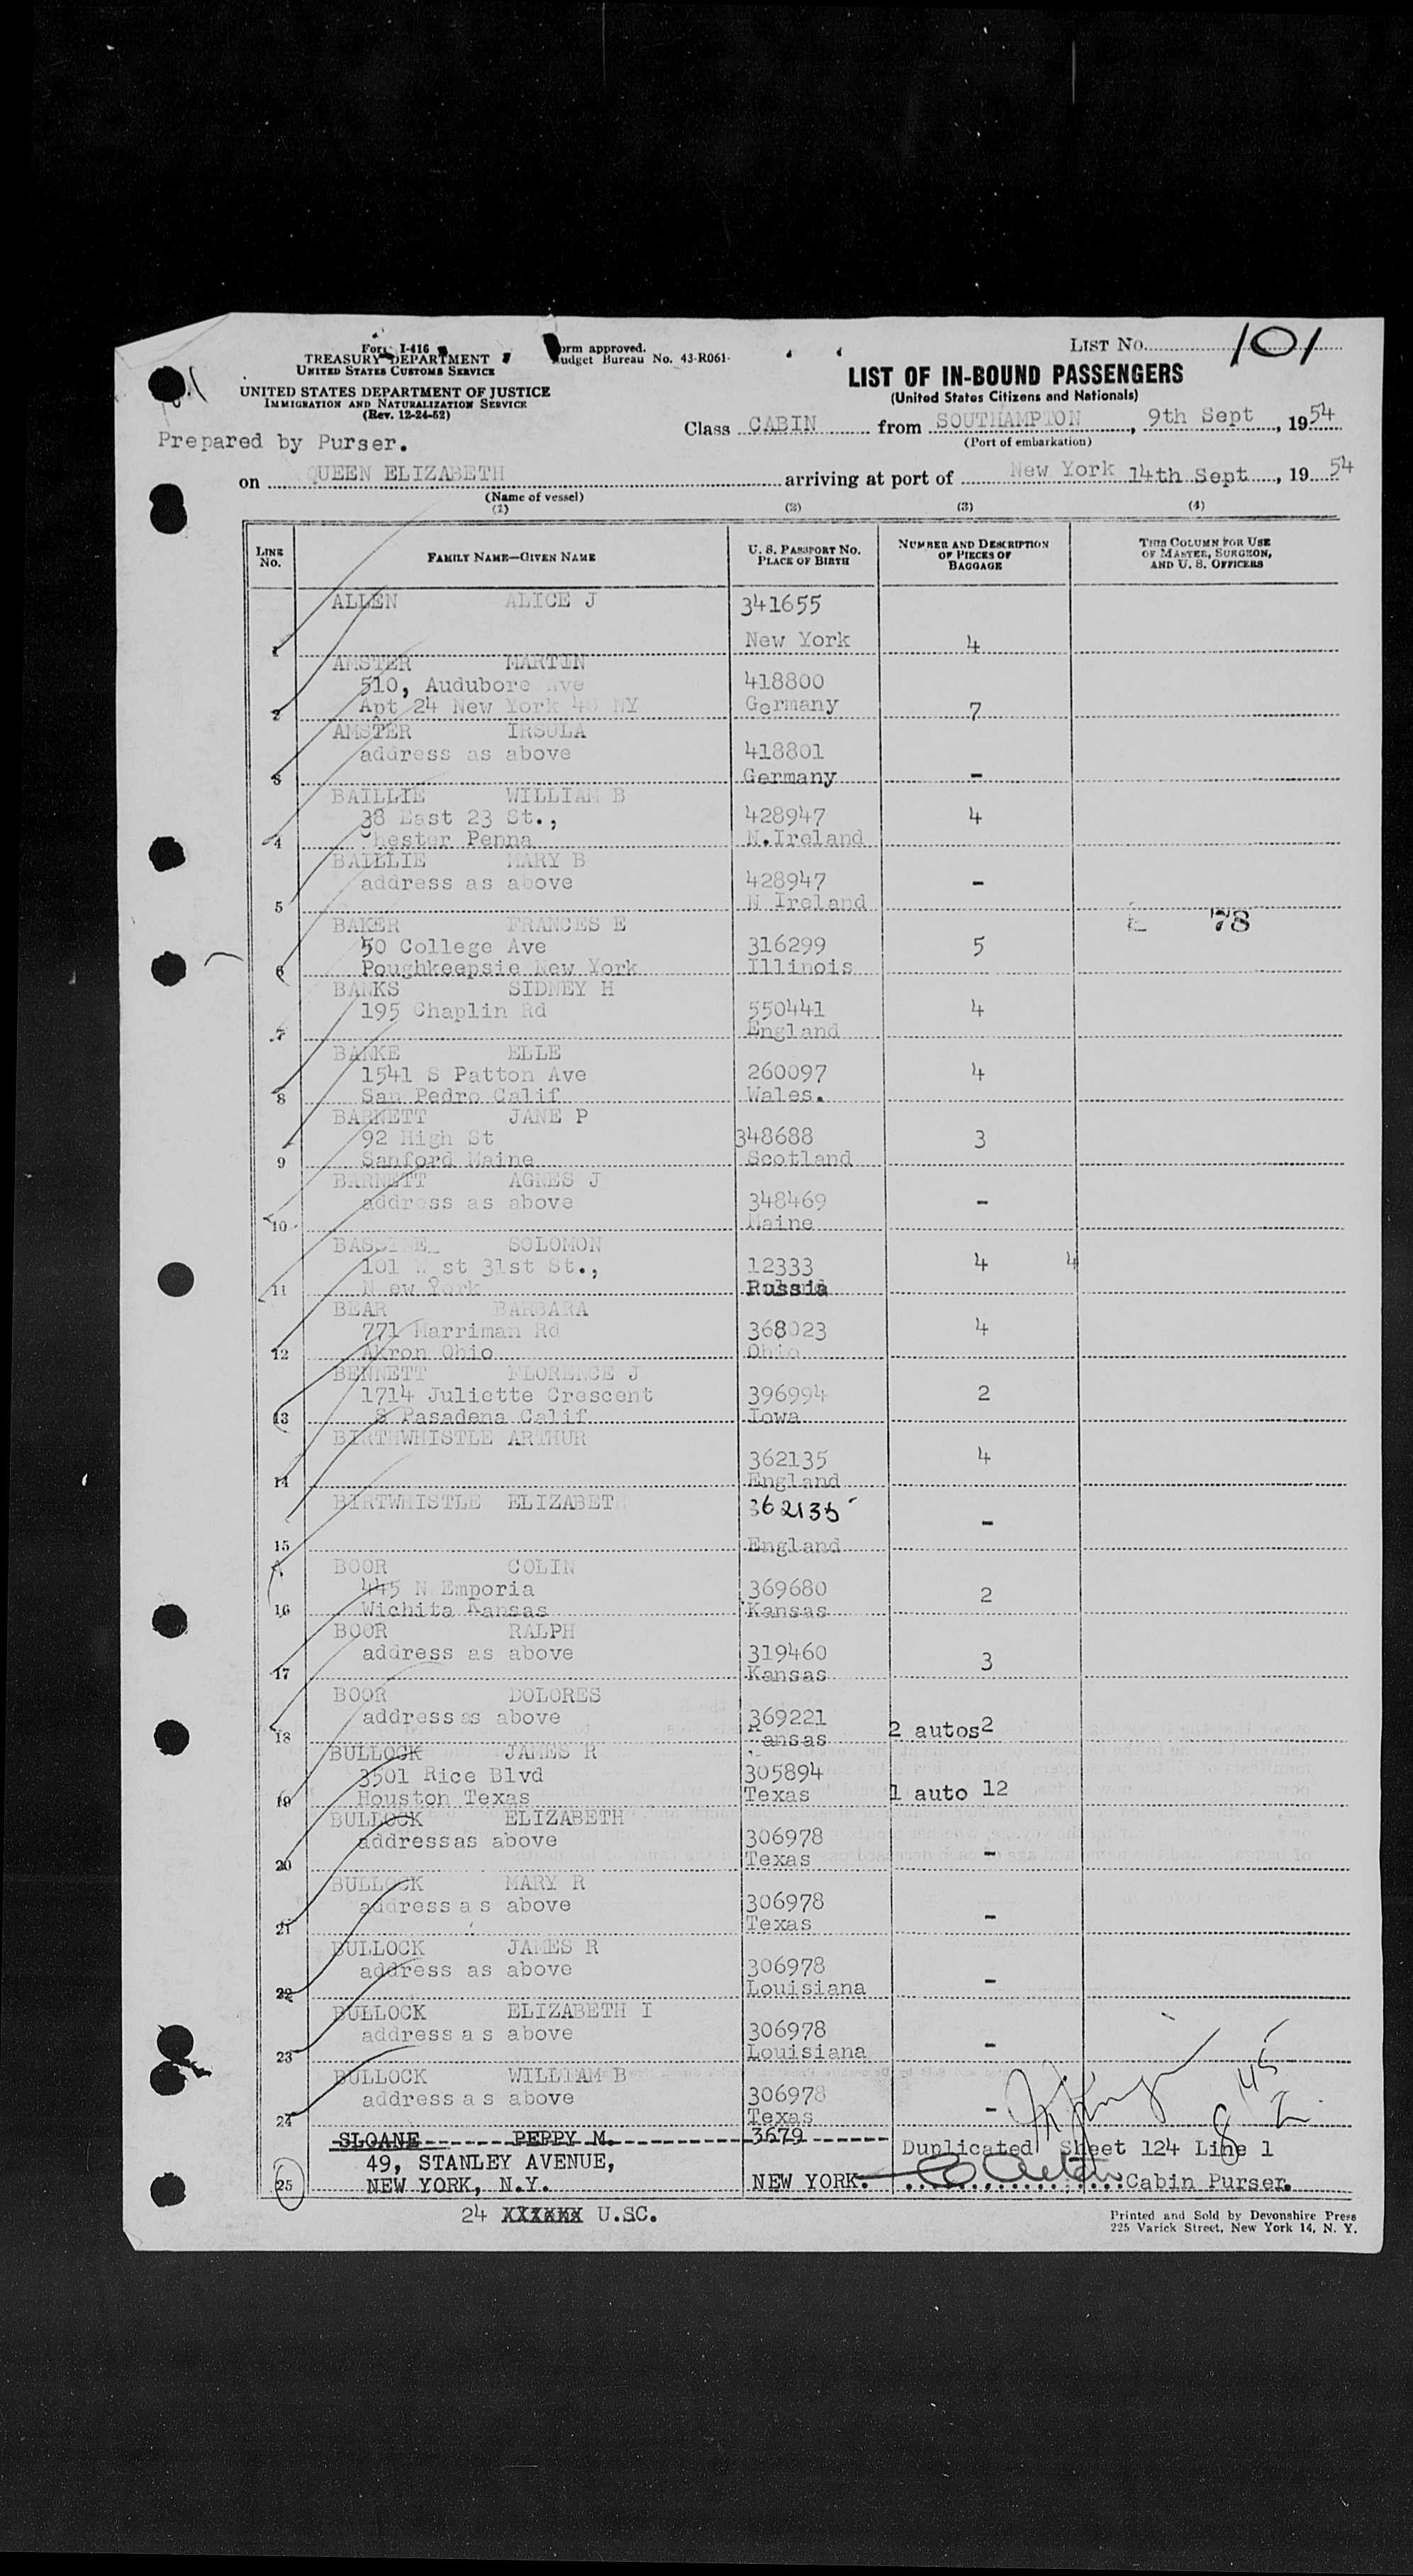 Form I-416
TREASURY DEPARTMENT
UNITED STATES CUSTOMS SERVICE
UNITED STATES DEPARTMENT OF JUSTICE
IMMIGRATION AND NATURALIZATION SERVICE
(Rev. 12-24-52)
Form approved.
Budget Bureau No. 43-R061-
LIST NO. 101
LIST OF IN-BOUND PASSENGERS
(United States Citizens and Nationals)
Prepared by Purser.
Class CABIN from SOUTHAMPTON, 9th Sept, 1954
(Port of embarkation)
on QUEEN ELIZABETH arriving at port of New York 14th Sept, 1954
(Name of vessel)
(1) (2) (3) (4)
LINE NO. FAMILY NAME—GIVEN NAME U. S. PASSPORT NO. PLACE OF BIRTH NUMBER AND DESCRIPTION OF PIECES OF BAGGAGE THIS COLUMN FOR USE OF MASTER, SURGEON, AND U. S. OFFICERS
ALLEN ALICE J 341655
1 New York 4
AMSTER MARTIN
510, Audubore Ave 418800
2 Apt 24 New York 40 NY Germany 7
AMSTER IRSULA
address as above 418801
3 Germany -
BAILLIE WILLIAM B
38 East 23 St., 428947 4
4 Chester Penna N.Ireland
BAILLIE MARY B
address as above 428947 -
5 N Ireland
BAKER FRANCES E 78
50 College Ave 316299 5
6 Poughkeepsie New York Illinois
BANKS SIDNEY H
195 Chaplin Rd 550441 4
7 England
BANKE ELLE
1541 S Patton Ave 260097 4
8 San Pedro Calif Wales.
BARNETT JANE P
92 High St 348688 3
9 Sanford Maine Scotland
BARNETT AGNES J
address as above 348469 -
10 Maine
SOLOMON
101 W st 31st St., 12333 4 4
11 N ew York Russia
BEAR BARBARA
771 Marriman Rd 368023 4
12 Akron Ohio Ohio
BENNETT FLORENCE J
1714 Juliette Crescent 396994 2
13 S Pasadena Calif Iowa
BIRTHWHISTLE ARTHUR
362135 4
14 England
BIRTWHISTLE ELIZABETH 362135
-
15 England
BOOR COLIN
445 N Emporia 369680 2
16 Wichita Kansas Kansas
BOOR RALPH
address as above 319460 3
17 Kansas
BOOR DOLORES
address as above 369221 2 autos 2
18 Kansas
BULLOCK JAMES R
3501 Rice Blvd 305894
19 Houston Texas Texas 1 auto 12
BULLOCK ELIZABETH
address as above 306978 -
20 Texas
BULLOCK MARY R
address a s above 306978
21 Texas -
BULLOCK JAMES R
address as above 306978 -
22 Louisiana
BULLOCK ELIZABETH I
address a s above 306978 -
23 Louisiana
BULLOCK WILLIAM B
address a s above 306978 -
24 Texas
SLOANE PEPPY M. 3679 Duplicated Sheet 124 Line 1
49, STANLEY AVENUE,
25 NEW YORK, N.Y. NEW YORK. Cabin Purser.
24 XXXXXX U.SC.
Printed and Sold by Devonshire Press
225 Varick Street, New York 14, N. Y.